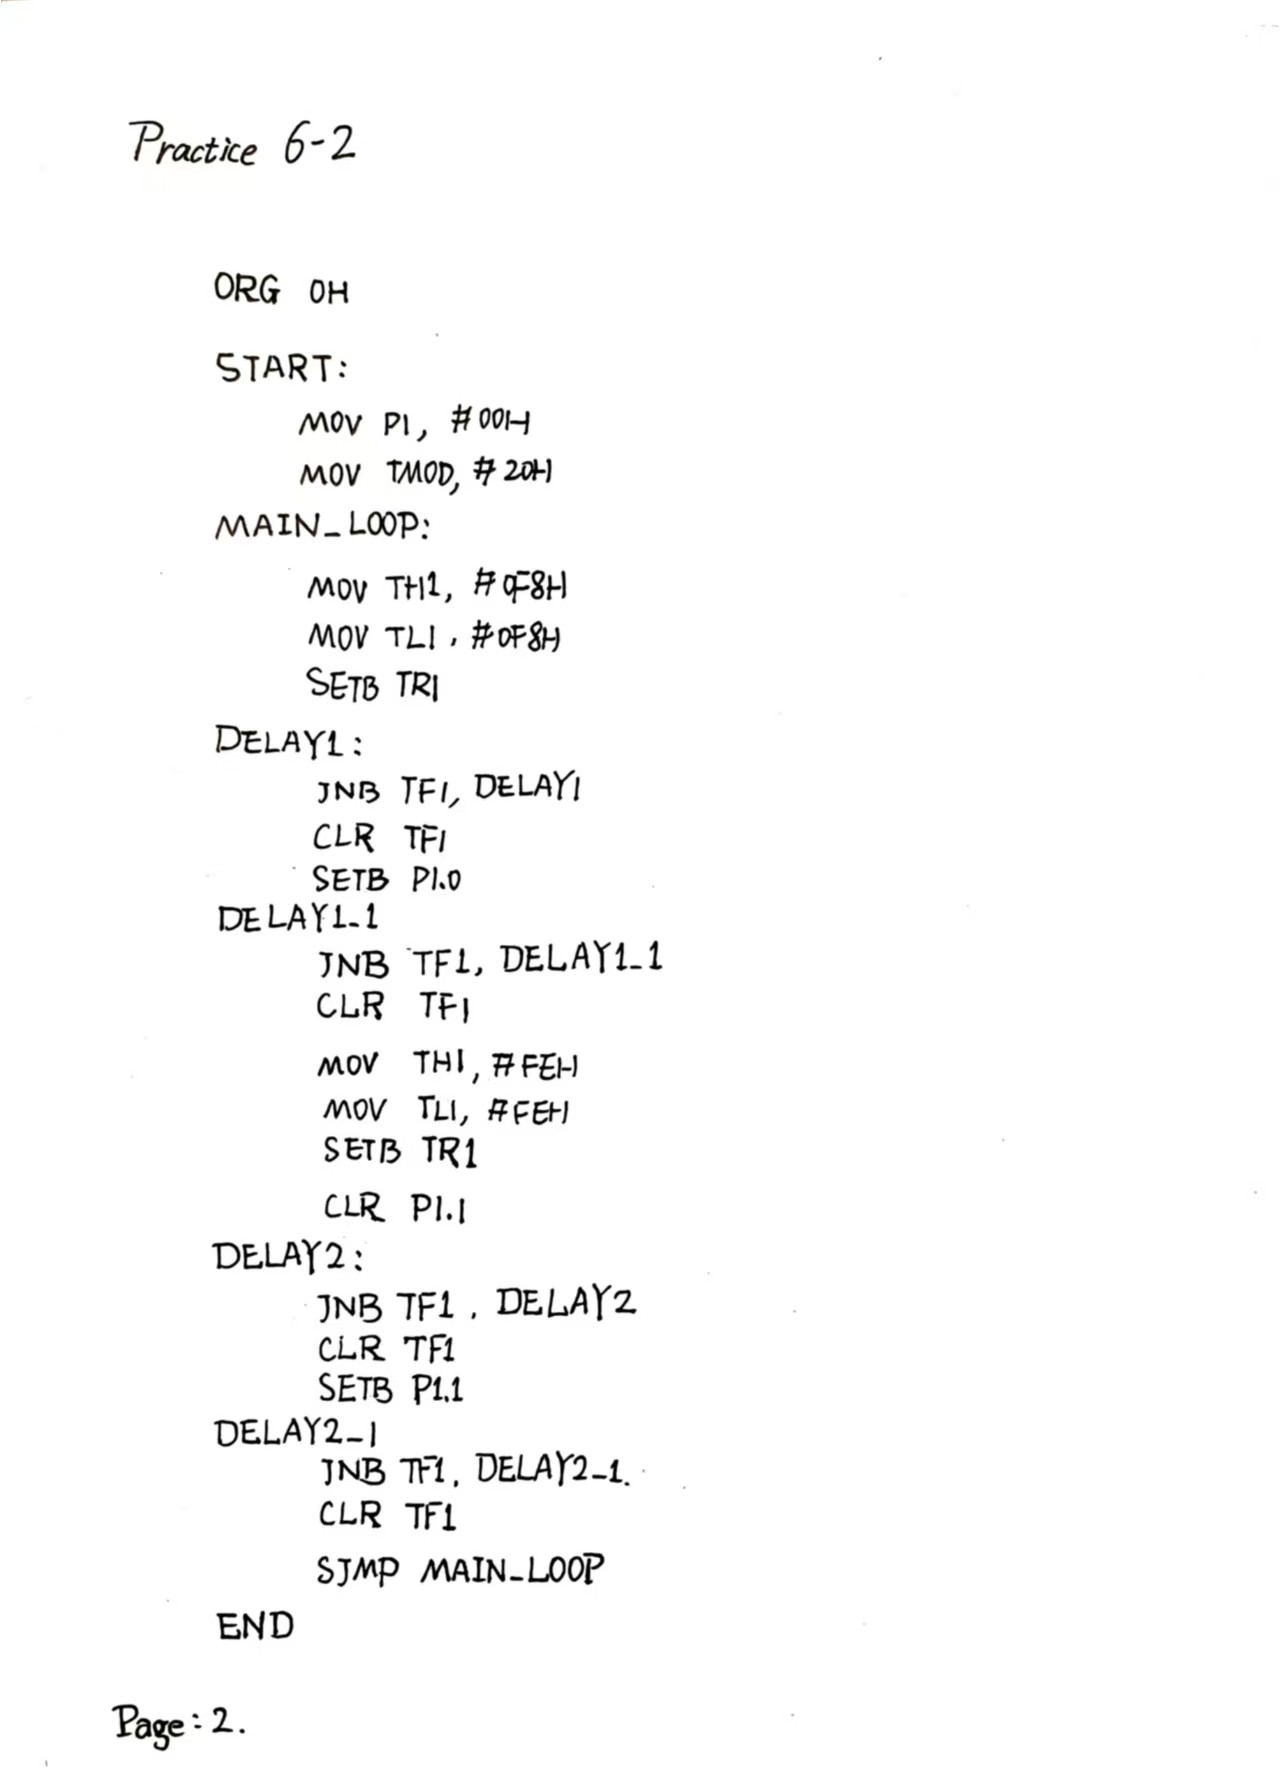 Practice 6-2
ORG 0H
START:
MOV P1, #00H
MOV TMOD, #20H
MAIN_LOOP:
MOV TH1, #0F8H
MOV TL1, #0F8H
SETB TR1
DELAY1:
JNB TF1, DELAY1
CLR TF1
SETB P1.0
DELAY1_1
JNB TF1, DELAY1_1
CLR TF1
MOV TH1, #FEH
MOV TL1, #FEH
SETB TR1
CLR P1.1
DELAY2:
JNB TF1, DELAY2
CLR TF1
SETB P1.1
DELAY2_1
JNB TF1, DELAY2_1.
CLR TF1
SJMP MAIN_LOOP
END
Page: 2.